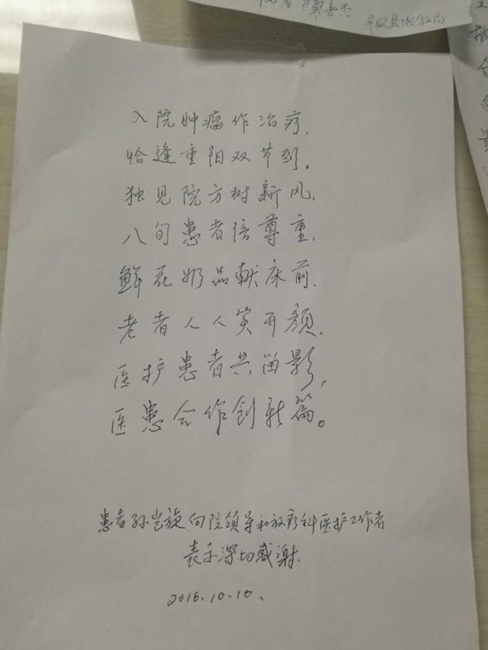 入院肿瘤作治疗，
恰逢重阳双节到。
独见院方树新风，
八旬患者倍尊重，
鲜花奶品献床前，
老者人人笑开颜，
医护患者共留影，
医患合作创新篇。
患者孙 旋向院领导和放疗科医护工作者
表示深切感谢
2016.10.10.